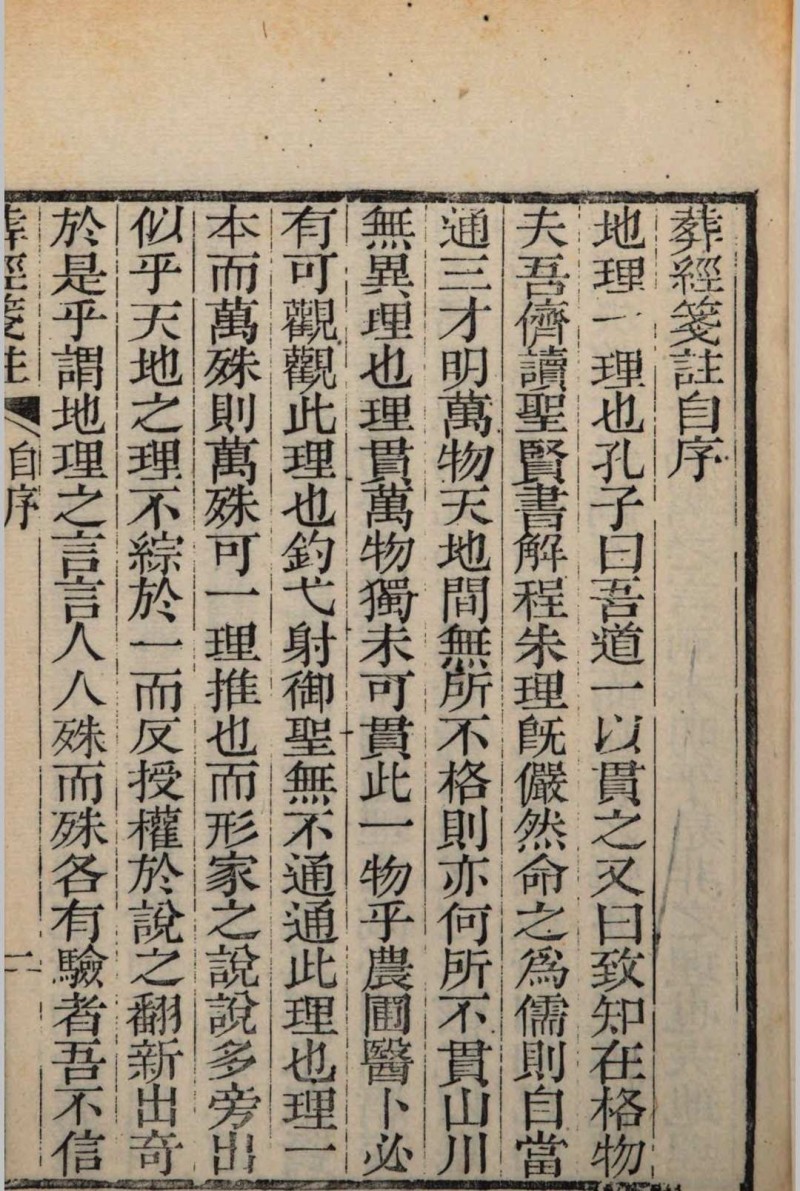 葬經箋註自序
地理一理也孔子曰吾道一以貫之又曰致知在格物
夫吾儕讀聖賢書解程朱理旣儼然命之爲儒則自當
通三才明萬物天地間無所不格則亦何所不貫山川
無異理也理貫萬物獨未可貫此一物乎農圃醫卜必
有可觀觀此理也釣弋射御聖無不通通此理也理一
本而萬殊則萬殊可一理推也而形家之說說多旁出
似乎天地之理不綜於一而反授權於說之翻新出奇
於是乎謂地理之言言人人殊而殊各有驗者吾不信
葬經箋註 自序 一